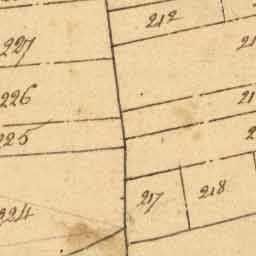 212
227
226
225
217 218
224